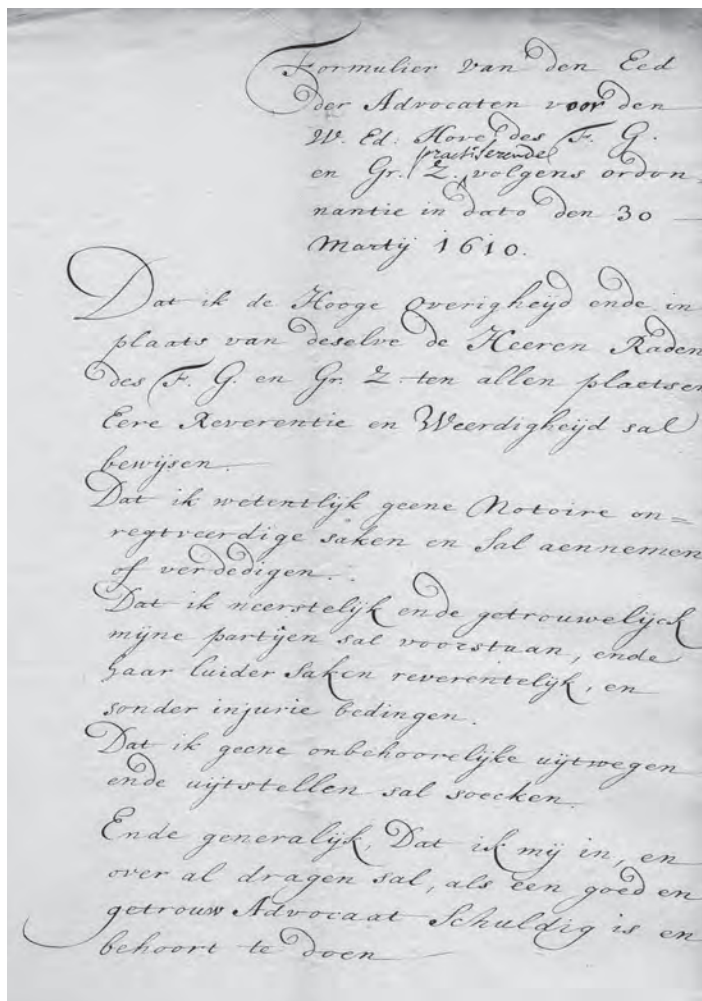 Formulier van den Eed
der Advocaten voor den
W. Ed: Hove des F. G.
practiserende
en Gr. Z. volgens ordon-
nantie in dato den 30
Martij 1610.
Dat ik de Hooge Overigheijd ende in
plaats van deselve de Heeren Raden
des F. G. en Gr. Z. ten allen plaetsen
Eere Reverentie en Weerdigheijd sal
bewijsen.
Dat ik wetentlijk geene Notoire on=
regtveerdige saken en sal aennemen
of verdedigen.
Dat ik neerstelijk ende getrouwelijck
mijne partijen sal voorstaan, ende
haar luider saken reverentelijk, en
sonder injurie bedingen.
Dat ik geene onbehoorelijke uijtwegen
ende uijtstellen sal soecken.
Ende generalijk, Dat ik mij in, en
over al dragen sal, als een goed en
getrouw Advocaat Schuldig is en
behoort te doen